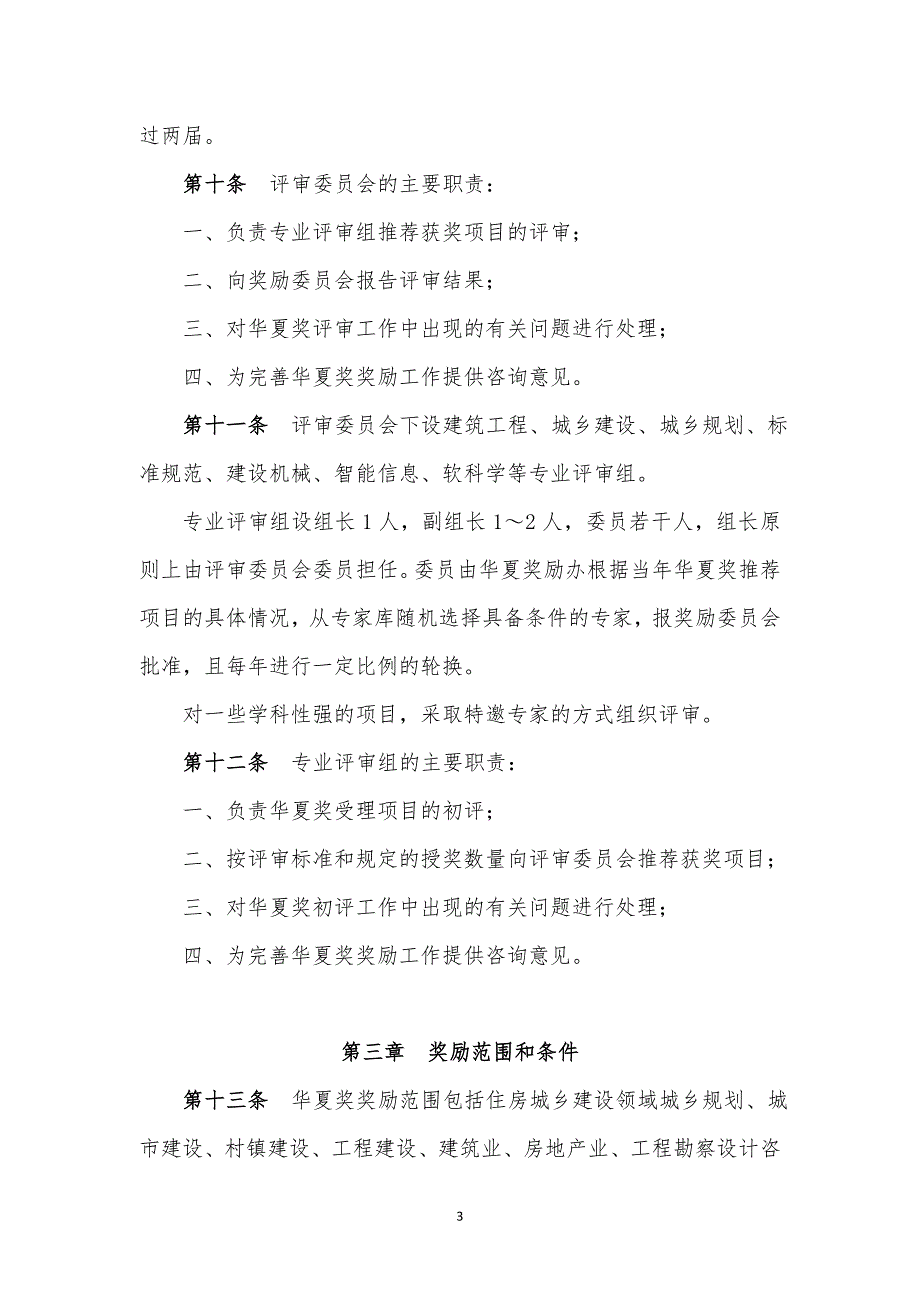 过两届。
第十条　评审委员会的主要职责：
一、负责专业评审组推荐获奖项目的评审；
二、向奖励委员会报告评审结果；
三、对华夏奖评审工作中出现的有关问题进行处理；
四、为完善华夏奖奖励工作提供咨询意见。
第十一条　评审委员会下设建筑工程、城乡建设、城乡规划、标
准规范、建设机械、智能信息、软科学等专业评审组。
专业评审组设组长1人，副组长1～2人，委员若干人，组长原
则上由评审委员会委员担任。委员由华夏奖励办根据当年华夏奖推荐
项目的具体情况，从专家库随机选择具备条件的专家，报奖励委员会
批准，且每年进行一定比例的轮换。
对一些学科性强的项目，采取特邀专家的方式组织评审。
第十二条　专业评审组的主要职责：
一、负责华夏奖受理项目的初评；
二、按评审标准和规定的授奖数量向评审委员会推荐获奖项目；
三、对华夏奖初评工作中出现的有关问题进行处理；
四、为完善华夏奖奖励工作提供咨询意见。
第三章　奖励范围和条件
第十三条　华夏奖奖励范围包括住房城乡建设领域城乡规划、城
市建设、村镇建设、工程建设、建筑业、房地产业、工程勘察设计咨
3